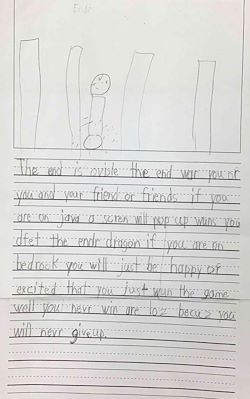 Ender
The end is outsle the end war you nr
you and your friend or friends if you
are on java a scren will pop up wuns you
dfet the endr dragon if you are on
bedrock you will just be happy or
excited that you just wun the game
well you nevr win are loz becuz you
will nevr giveup.